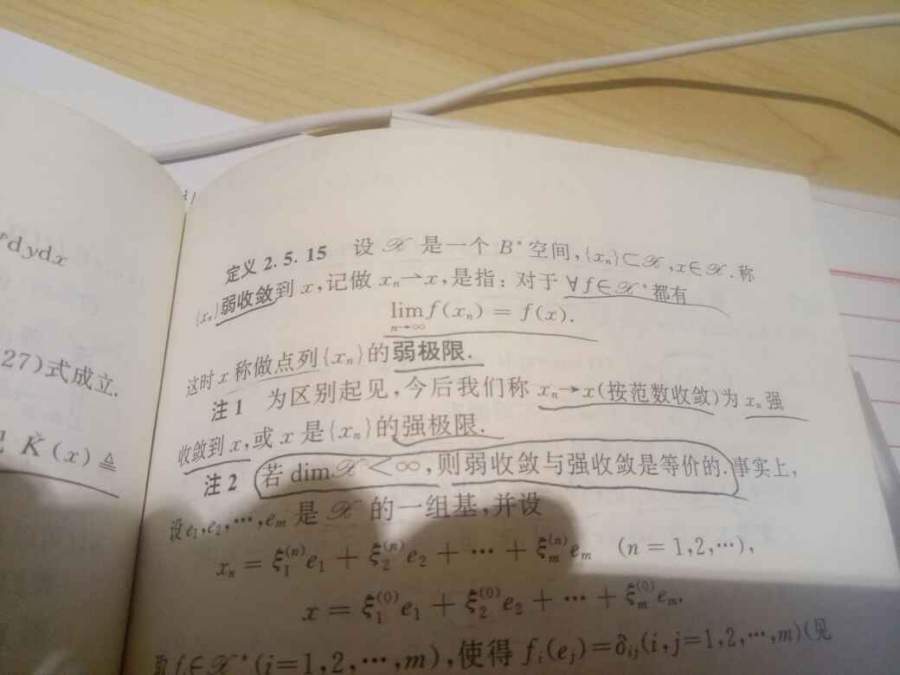 dydx
27)式成立.
K(x)≜
定义 2.5.15 设 𝒳 是一个 B* 空间,{xₙ}⊂𝒳,x∈𝒳.称
{xₙ}弱收敛到 x,记做 xₙ⇀x,是指:对于 ∀f∈𝒳* 都有
lim f(xₙ) = f(x).
n→∞
这时 x 称做点列{xₙ}的弱极限.
注 1 为区别起见,今后我们称 xₙ→x(按范数收敛)为 xₙ 强
收敛到 x,或 x 是{xₙ}的强极限.
注 2 若 dim𝒳<∞,则弱收敛与强收敛是等价的.事实上,
设 e₁,e₂,⋯,eₘ 是 𝒳 的一组基,并设
xₙ = ξ₁⁽ⁿ⁾e₁ + ξ₂⁽ⁿ⁾e₂ + ⋯ + ξₘ⁽ⁿ⁾eₘ (n = 1,2,⋯),
x = ξ₁⁽⁰⁾e₁ + ξ₂⁽⁰⁾e₂ + ⋯ + ξₘ⁽⁰⁾eₘ.
取 fᵢ∈𝒳*(i=1,2,⋯,m),使得 fᵢ(eⱼ)=δᵢⱼ(i,j=1,2,⋯,m)(见